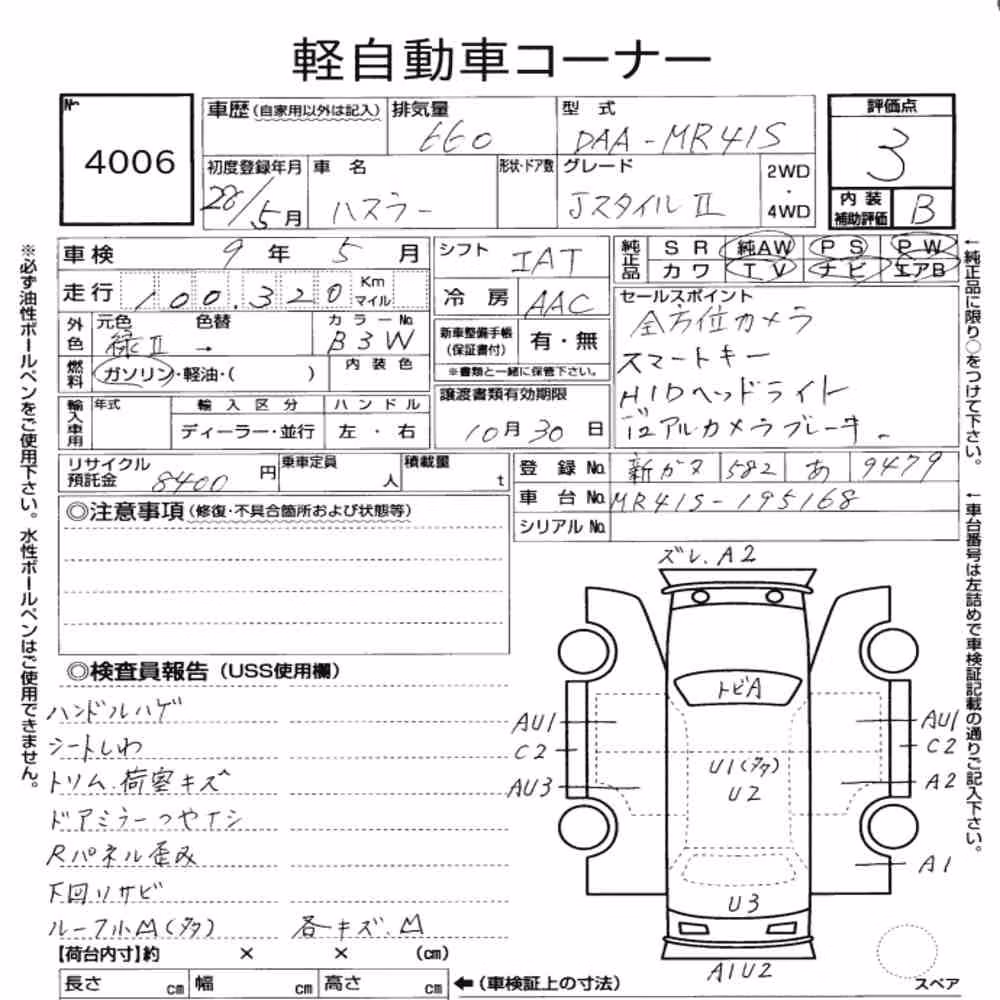 軽自動車コーナー
No. 4006
車歴(自家用以外は記入) 排気量 660 型式 DAA-MR41S
評価点 3
初度登録年月 28/5月 車名 ハスラー 形状・ドア数 グレード JスタイルⅡ 2WD・4WD
内装補助評価 B
車検 9年5月 シフト IAT 純正品 SR 純AW PS PW
カワ TV ナビ エアB
走行 100,320 Km マイル 冷房 AAC
セールスポイント
全方位カメラ
外色 元色 緑Ⅱ 色替 → カラーNo. B3W 新車整備手帳(保証書付) 有・無
スマートキー
※書類と一緒に保管下さい。
燃料 ガソリン・軽油・( ) 内装色
HIDヘッドライト
輸入車用 年式 輸入区分 ハンドル 譲渡書類有効期限
ディーラー・並行 左・右 10月30日
デュアルカメラブレーキ。
リサイクル預託金 8400円 乗車定員 人 積載量 t
登録No. 582 あ 9479
車台No. MR41S-195168
シリアルNo.
◎注意事項(修復・不具合箇所および状態等)
◎検査員報告(USS使用欄)
ハンドルハゲ
シートしわ
トリム.荷室キズ
ドアミラーつやナシ
Rパネル歪み
下回りサビ
ルーフ小凹(多) 各キズ.凹
ズレ.A2
トビA
AU1 AU1
C2 C2
U1(多)
AU3 U2 A2
A1
U3
A1U2
スペア
【荷台内寸】約 × × (cm)
長さ cm 幅 cm 高さ cm ←(車検証上の寸法)
※必ず油性ボールペンをご使用下さい。水性ボールペンはご使用できません。
←純正品に限り○をつけて下さい。
←車台番号は左詰めで車検証記載の通りご記入下さい。